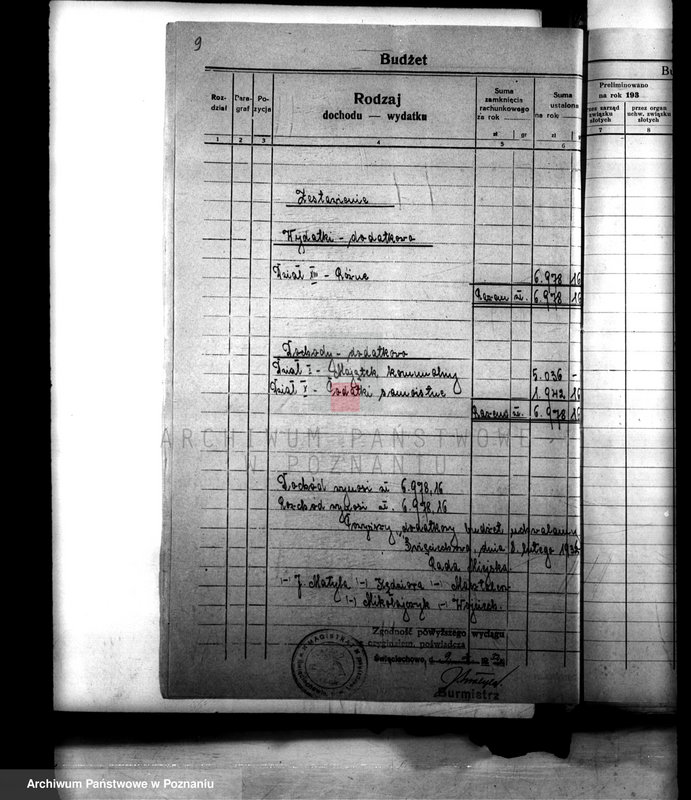 9
Budżet
Roz-
dział
Para-
graf
Po-
zycja
Rodzaj
dochodu — wydatku
Suma
zamknięcia
rachunkowego
za rok
zł gr
Suma
ustalona
na rok
zł
1 2 3 4 5 6
Zestawienie
Wydatki - dodatkowo
Dział XIII - Różne 6.978 16
Razem zł. 6.978 16
Dochody - dodatkowo
Dział I - Majątek komunalny 5.036 -
Dział X - Podatki samoistne 1.942 16
Razem zł. 6.978 16
ARCHIWUM PAŃSTWOWE
W POZNANIU
Dochód wynosi zł 6.978,16
Rozchód wynosi zł. 6.978,16
Powyższy dodatkowy budżet uchwalamy
Święciechowa, dnia 8. lutego 193
Rada Miejska.
/-/ J. Matyla /-/ /-/
/-/ Mikołajczyk /-/ Wojciech.
Zgodność powyższego wyciągu
z oryginałem, poświadcza
Święciechowa, d.
Burmistrz
MAGISTRAT
Bu
Preliminowano
na rok 193
przez zarząd
związku
złotych
przez organ
uchw. związku
złotych
7 8
Archiwum Państwowe w Poznaniu